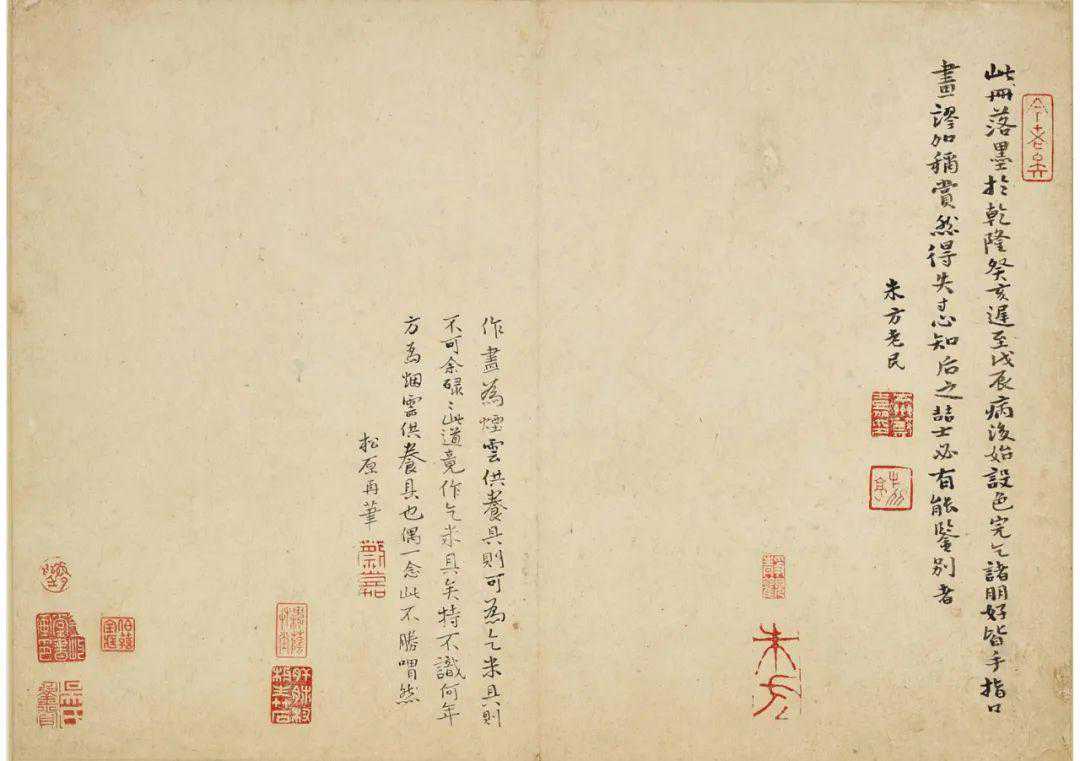 今老矣
此冊落墨於乾隆癸亥遲至戊辰病後始設色完乞諸朋好皆手指口
畫謬加稱賞然得失寸心知后之喆士必有能鑒別者
朱方老民
朱方
作畫為煙雲供養具則可為乞米具則
不可余碌〻此道竟作乞米具矣特不識何年
方為烟雲供養具也偶一念此不勝喟然
松原再筆